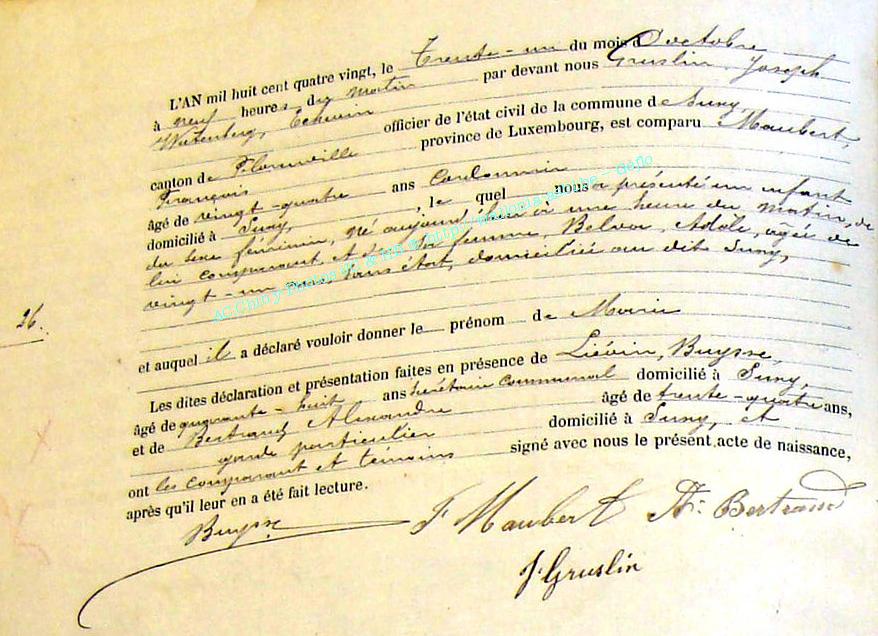 L'AN mil huit cent quatre vingt, le Trente-un du mois d'octobre
à neuf heures du matin par devant nous Gruslin, Joseph
Echevin officier de l'état civil de la commune de Suxy,
canton de Florenville province de Luxembourg, est comparu Maubert,
François
âgé de vingt-quatre ans Cordonnier
domicilié à Suxy, , le quel nous a présenté un enfant
du sexe féminin, né aujourd'hui à une heure du matin, de
lui comparant et de sa femme, Belvaux, Adèle, âgée de
vingt-un ans, sans état, domiciliée au dit Suxy,
26.
et auquel il a déclaré vouloir donner le prénom de Marie
Les dites déclaration et présentation faites en présence de Liévin, Buysse,
âgé de quarante-huit ans secrétaire communal domicilié à Suxy,
et de Bertrand Alexandre âgé de trente-quatre ans,
garde particulier domicilié à Suxy, et
ont les comparant et témoins signé avec nous le présent acte de naissance,
après qu'il leur en a été fait lecture.
Buysse F Maubert A. Bertrand
J. Gruslin